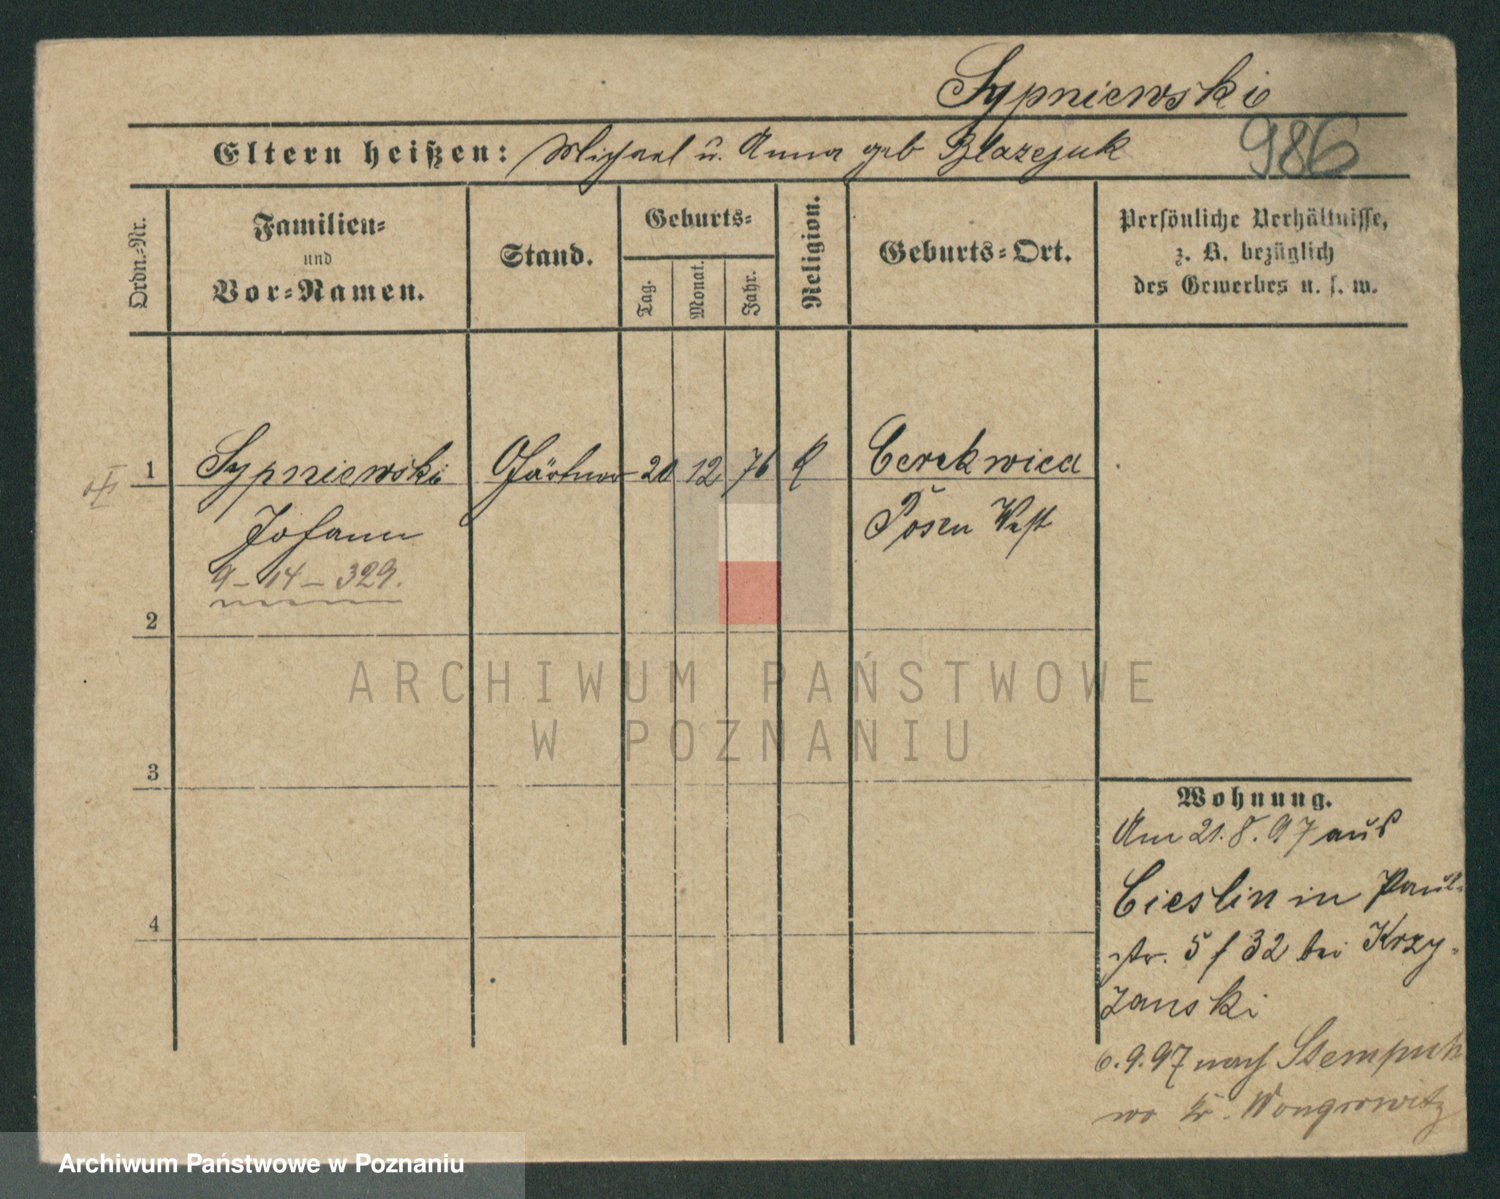 Sypniewski
986
Eltern heißen: Michael u. Anna geb Blazejuk
Ordn.-Nr.
Familien-
und
Vor-Namen.
Stand.
Geburts-
Tag.
Monat.
Jahr.
Religion.
Geburts-Ort.
Persönliche Verhältnisse,
z. B. bezüglich
des Gewerbes u. s. w.
1 Sypniewski Gärtner 20 12 76 K Cerekwica
Johann Posen West
9-14-329.
2
3
4
ARCHIWUM PAŃSTWOWE
W POZNANIU
Wohnung.
Am 21.8.97 aus
Cieslin in Paul-
str. 5 f 32 bei Krzy-
zanski
6.9.97 nach Stempucho
wo Kr. Wongrowitz
Archiwum Państwowe w Poznaniu